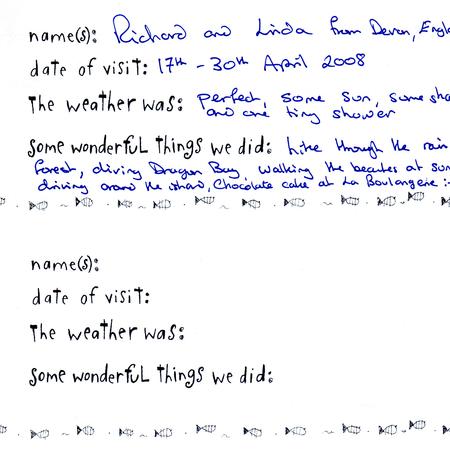 name(s): Richard and Linda from Devon, Engl
date of visit: 17th - 30th April 2008
The weather was: perfect, some sun, some sha
and one tiny shower
some wonderful things we did: hike through the rain
forest, diving Dragon Bay, walking the beaches at sun
diving around the island, Chocolate cake at La Boulangerie :-
name(s):
date of visit:
The weather was:
some wonderful things we did: